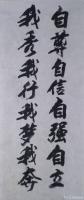 自尊自信自强自立
我秀我行我梦我奔